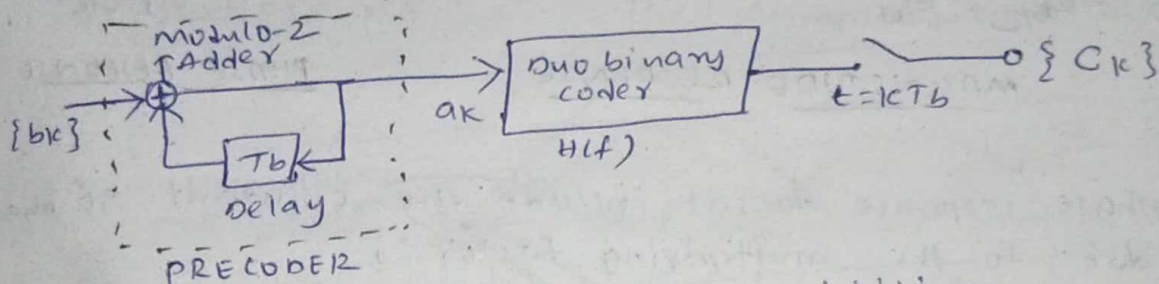 Modulo-2
Adder
{bk}
Tb
Delay
PRECODER
ak
Duo binary
coder
H(f)
t=kTb
{Ck}